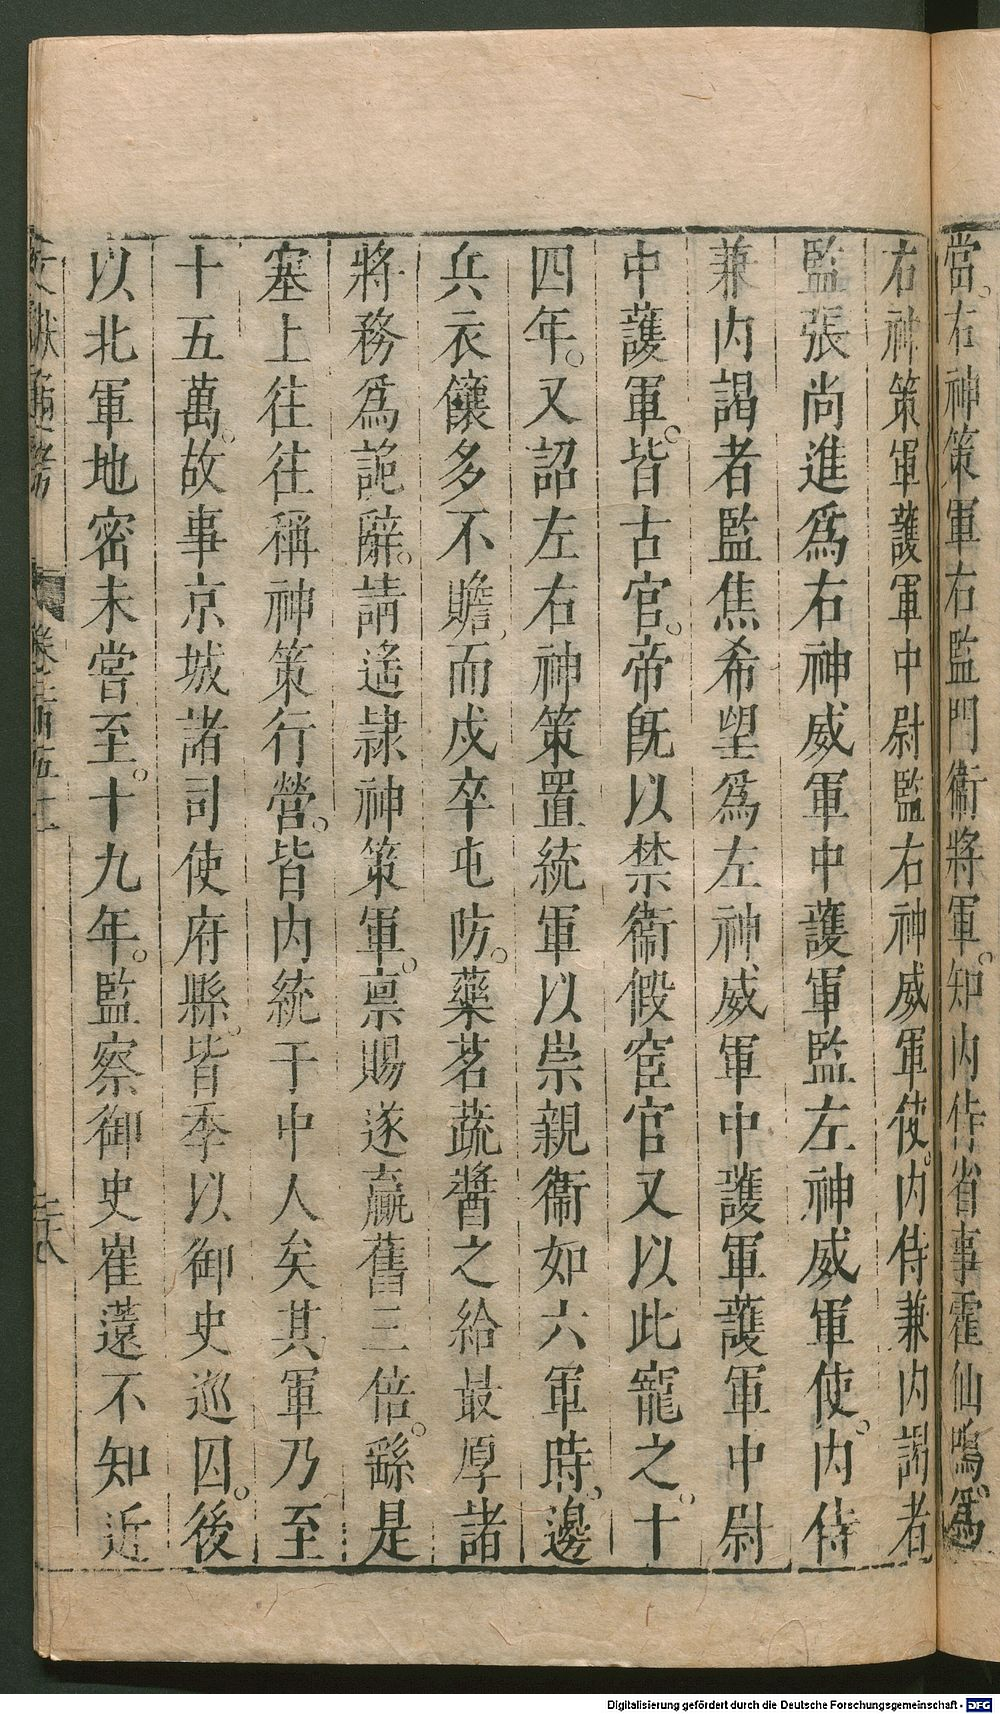 當右神策軍右監門衞將軍知內侍省事霍仙鳴爲
右神策軍護軍中尉監右神威軍使內侍兼內謁者
監張尚進爲右神威軍中護軍監左神威軍使內侍
兼內謁者監焦希望爲左神威軍中護軍護軍中尉
中護軍皆古官帝旣以禁衞假宦官又以此寵之十
四年又詔左右神策置統軍以崇親衞如六軍時邊
兵衣饟多不贍而戍卒屯防藥茗蔬醬之給最厚諸
將務爲詭辭請遙隸神策軍稟賜遂贏舊三倍繇是
塞上往往稱神策行營皆內統于中人矣其軍乃至
十五萬故事京城諸司使府縣皆季以御史巡囚後
以北軍地密未嘗至十九年監察御史崔薳不知近
文獻通考 卷之一百五十一 三十八
Digitalisierung gefördert durch die Deutsche Forschungsgemeinschaft - DFG